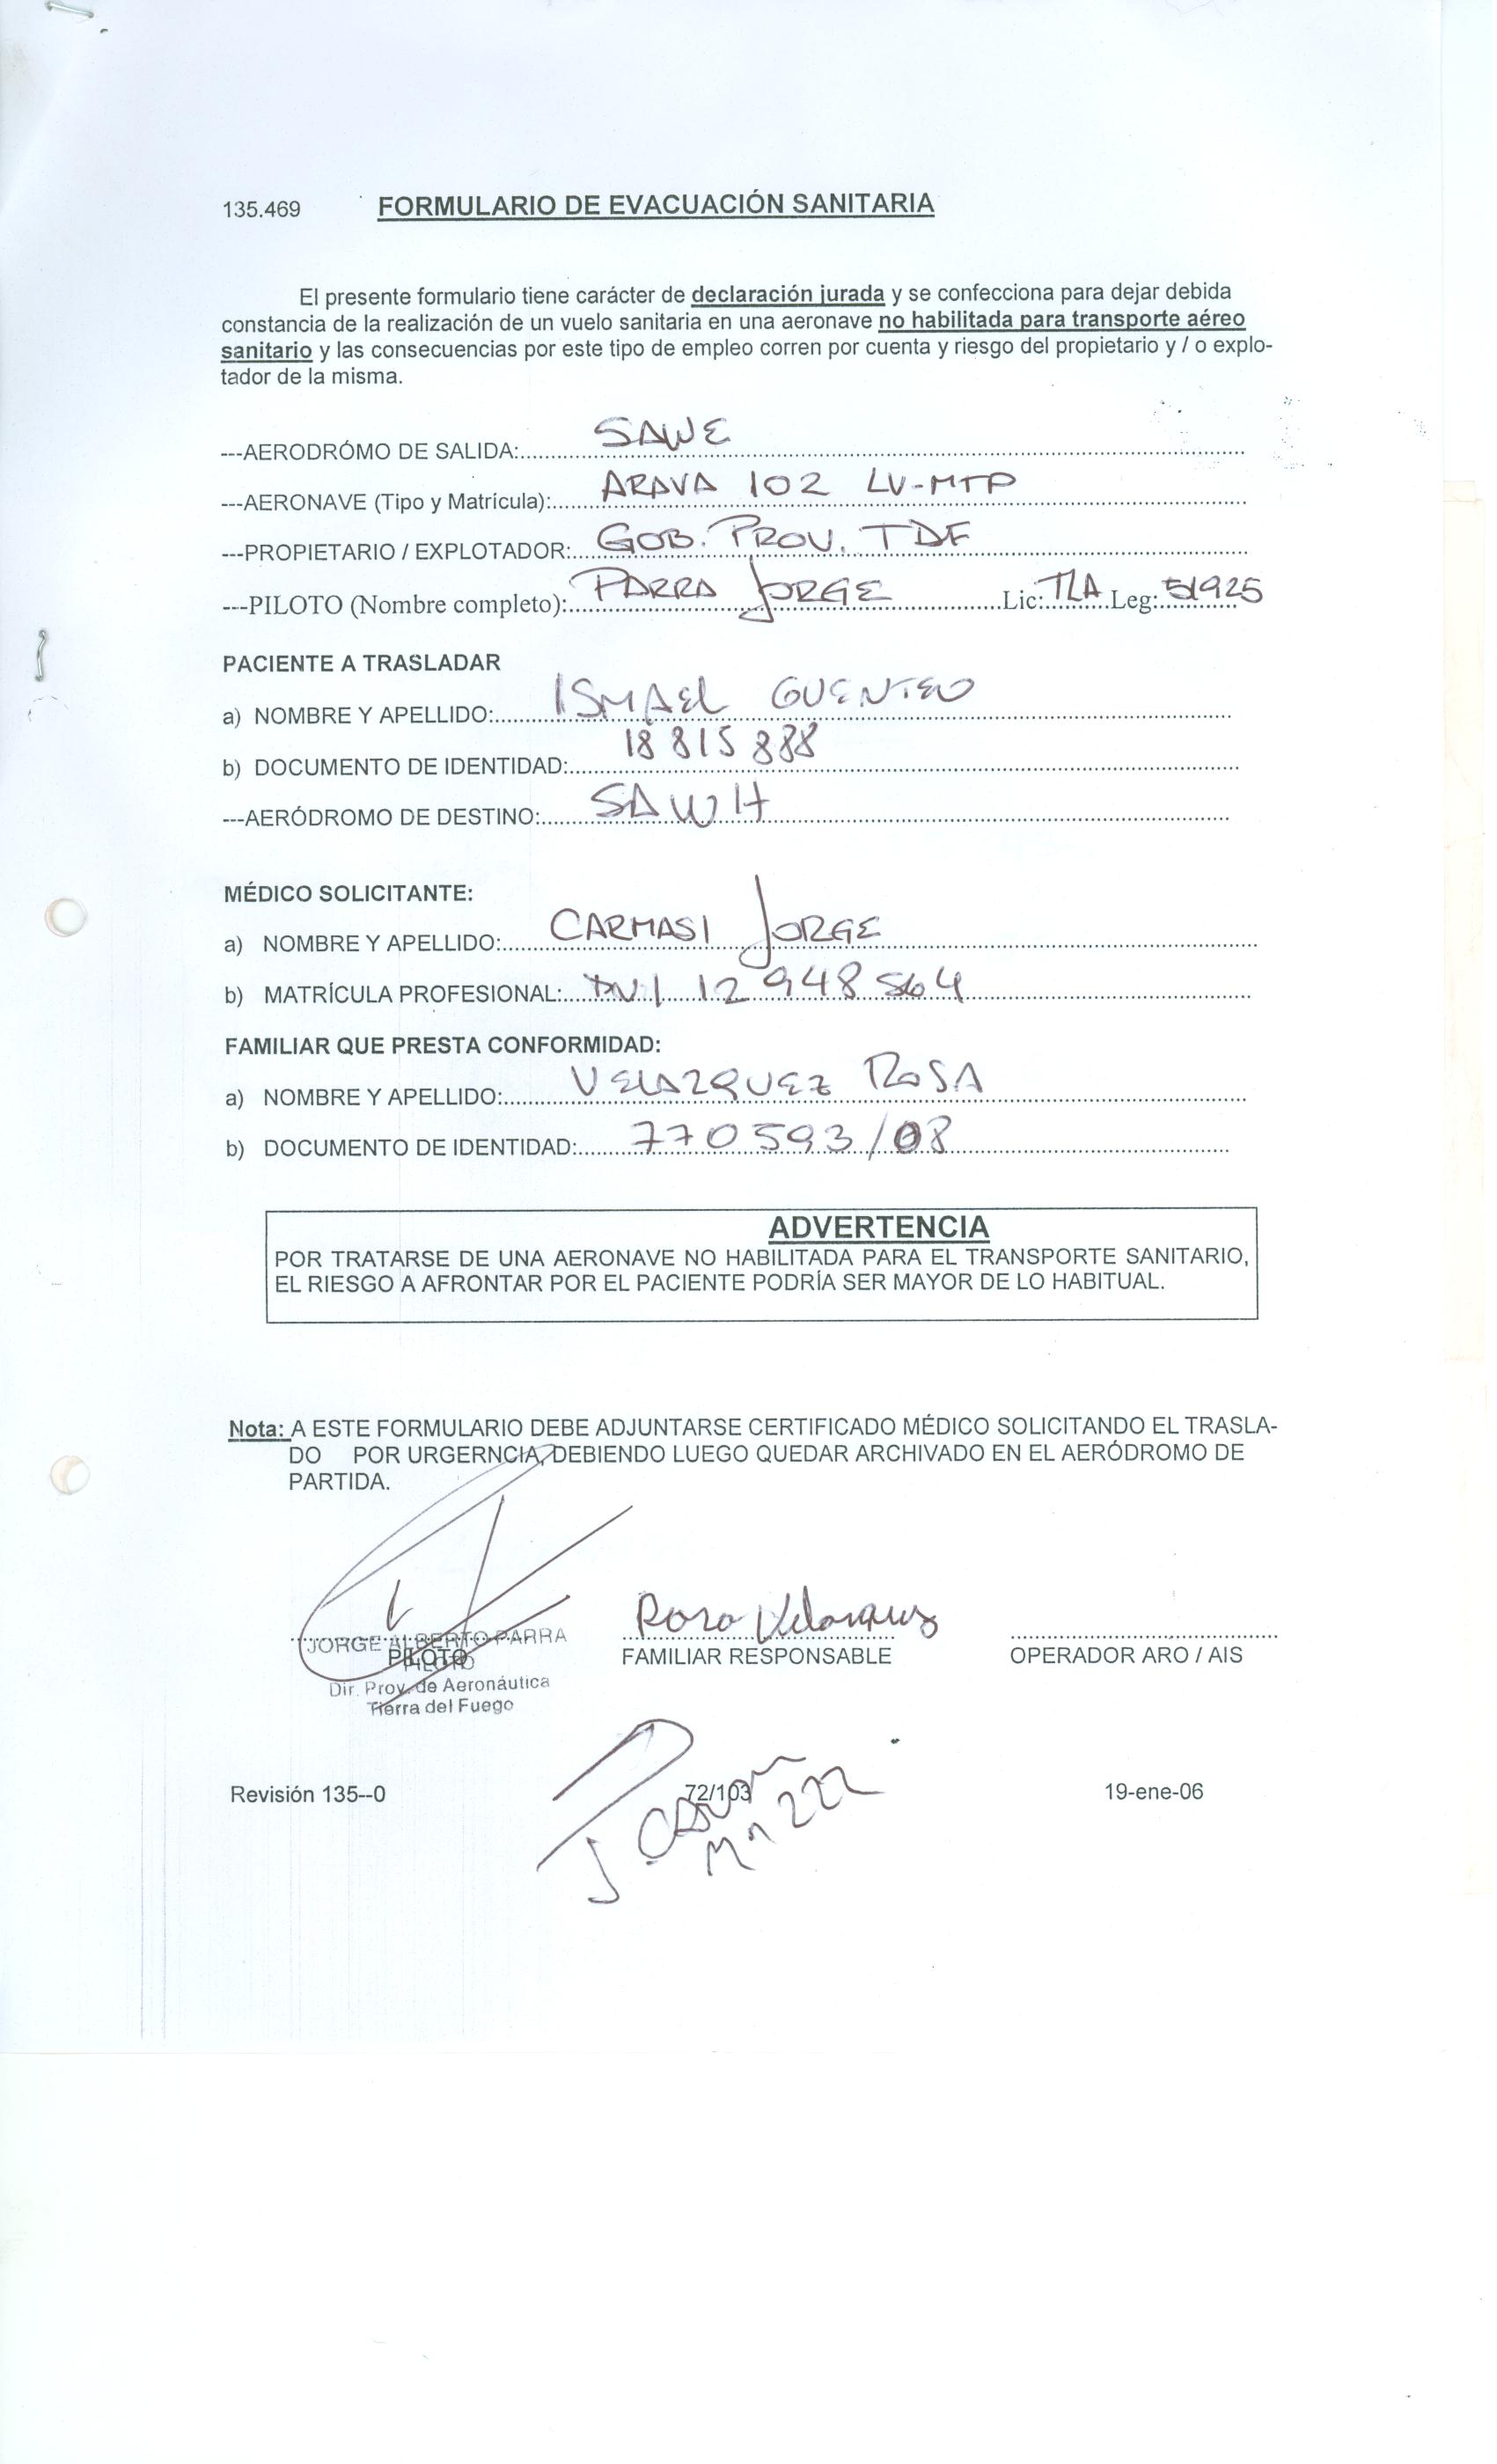 135.469 FORMULARIO DE EVACUACIÓN SANITARIA
El presente formulario tiene carácter de declaración jurada y se confecciona para dejar debida
constancia de la realización de un vuelo sanitaria en una aeronave no habilitada para transporte aéreo
sanitario y las consecuencias por este tipo de empleo corren por cuenta y riesgo del propietario y / o explo-
tador de la misma.
---AERODRÓMO DE SALIDA: SAWE
---AERONAVE (Tipo y Matrícula): ARAVA 102 LV-MTP
---PROPIETARIO / EXPLOTADOR: GOB. PROV. TDF
---PILOTO (Nombre completo): PARRA JORGE Lic: TLA Leg: 51925
PACIENTE A TRASLADAR
a) NOMBRE Y APELLIDO: ISMAEL GUENTEO
b) DOCUMENTO DE IDENTIDAD: 18 815 888
---AERÓDROMO DE DESTINO: SAWH
MÉDICO SOLICITANTE:
a) NOMBRE Y APELLIDO: CARMASI JORGE
b) MATRÍCULA PROFESIONAL: DNI 12 948 564
FAMILIAR QUE PRESTA CONFORMIDAD:
a) NOMBRE Y APELLIDO: VELAZQUEZ ROSA
b) DOCUMENTO DE IDENTIDAD: 770593/08
ADVERTENCIA
POR TRATARSE DE UNA AERONAVE NO HABILITADA PARA EL TRANSPORTE SANITARIO,
EL RIESGO A AFRONTAR POR EL PACIENTE PODRÍA SER MAYOR DE LO HABITUAL.
Nota: A ESTE FORMULARIO DEBE ADJUNTARSE CERTIFICADO MÉDICO SOLICITANDO EL TRASLA-
DO POR URGERNCIA, DEBIENDO LUEGO QUEDAR ARCHIVADO EN EL AERÓDROMO DE
PARTIDA.
Rosa Velazquez
JORGE ALBERTO PARRA
PILOTO FAMILIAR RESPONSABLE OPERADOR ARO / AIS
PILOTO
Dir. Prov. de Aeronáutica
Tierra del Fuego
Revisión 135--0 72/103 19-ene-06
222